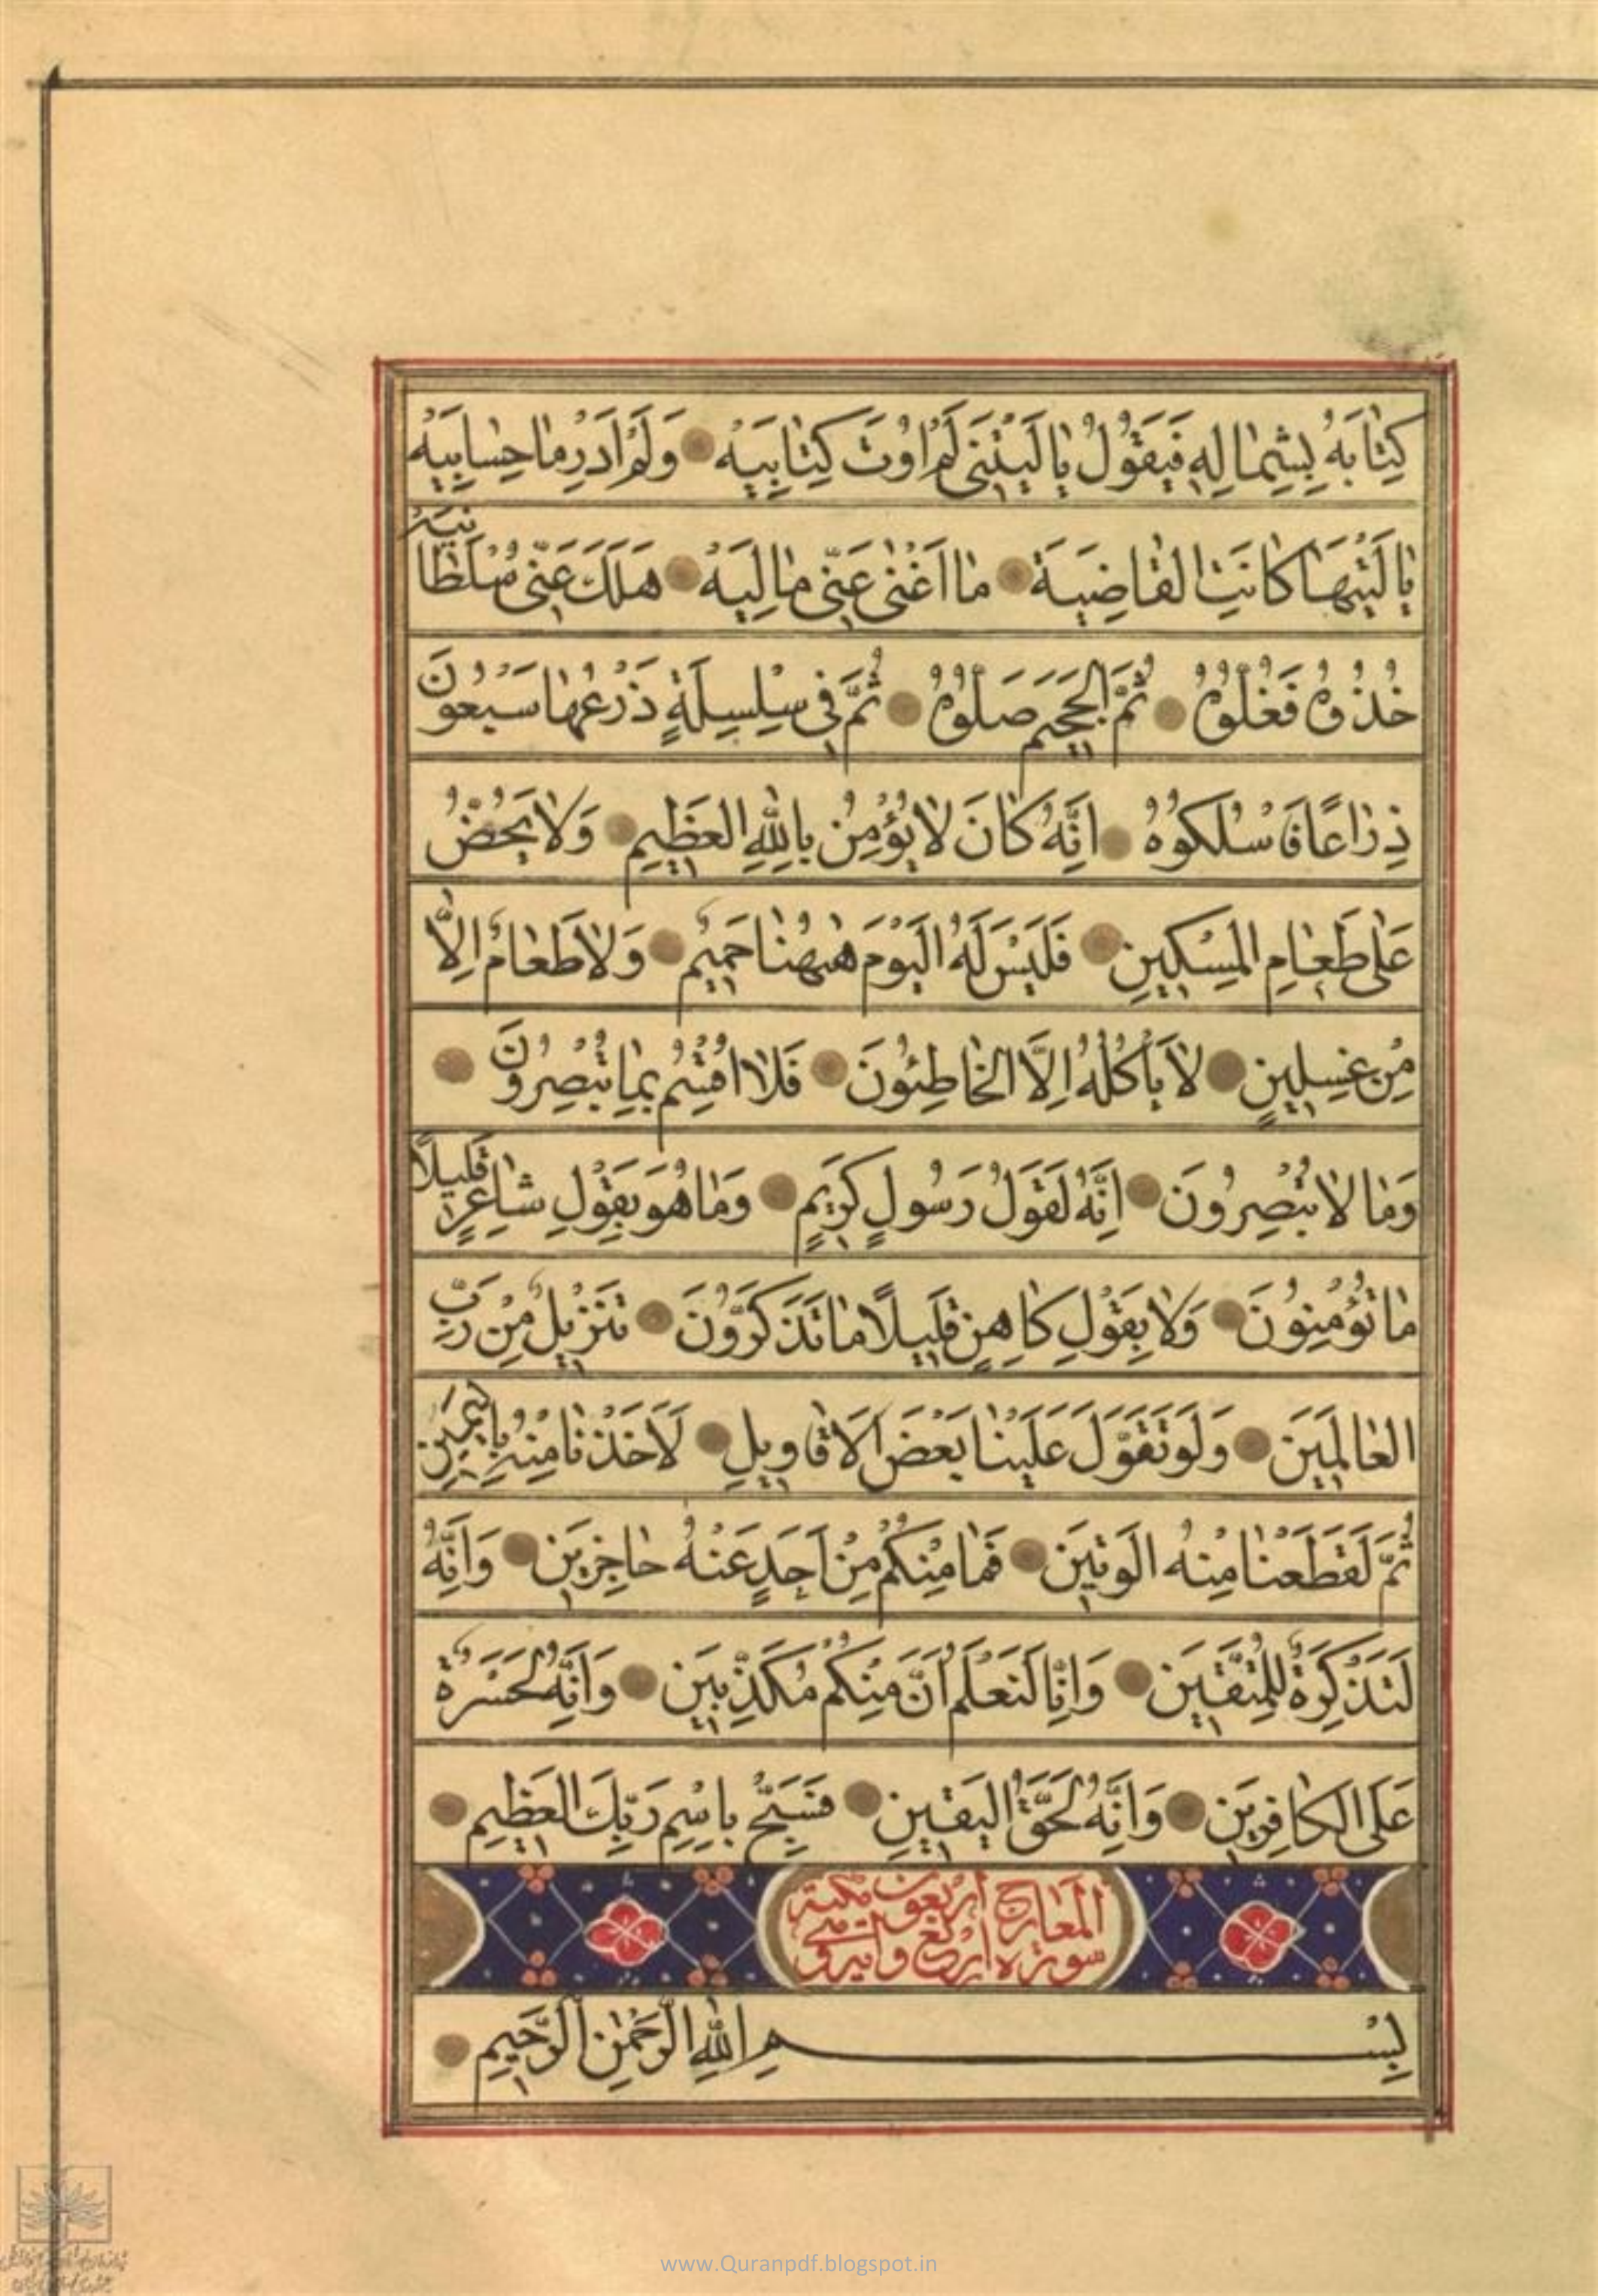 كِتٰابَهُ بِشِمٰالِهِ فَيَقُولُ يٰا لَيْتَنِي لَمْ اُوتَ كِتٰابِيَهْ وَلَمْ اَدْرِ مٰا حِسٰابِيَهْ
يٰا لَيْتَهٰا كٰانَتِ الْقٰاضِيَةَ مٰا اَغْنٰى عَنّى مٰالِيَهْ هَلَكَ عَنّى سُلْطٰانِيَهْ
خُذُوهُ فَغُلُّوهُ ثُمَّ الْجَحيمَ صَلُّوهُ ثُمَّ فى سِلْسِلَةٍ ذَرْعُهٰا سَبْعُونَ
ذِرٰاعًا فَاسْلُكُوهُ اِنَّهُ كٰانَ لٰا يُؤْمِنُ بِاللّٰهِ الْعَظيمِ وَلٰا يَحُضُّ
عَلٰى طَعٰامِ الْمِسْكينِ فَلَيْسَ لَهُ الْيَوْمَ هٰهُنٰا حَميمٌ وَلٰا طَعٰامٌ اِلّٰا
مِنْ غِسْلينٍ لٰا يَأْكُلُهُ اِلَّا الْخٰاطِئُونَ فَلٰا اُقْسِمُ بِمٰا تُبْصِرُونَ
وَمٰا لٰا تُبْصِرُونَ اِنَّهُ لَقَوْلُ رَسُولٍ كَريمٍ وَمٰا هُوَ بِقَوْلِ شٰاعِرٍ قَليلًا
مٰا تُؤْمِنُونَ وَلٰا بِقَوْلِ كٰاهِنٍ قَليلًا مٰا تَذَكَّرُونَ تَنْزيلٌ مِنْ رَبِّ
الْعٰالَمينَ وَلَوْ تَقَوَّلَ عَلَيْنٰا بَعْضَ الْاَقٰاويلِ لَاَخَذْنٰا مِنْهُ بِالْيَمينِ
ثُمَّ لَقَطَعْنٰا مِنْهُ الْوَتينَ فَمٰا مِنْكُمْ مِنْ اَحَدٍ عَنْهُ حٰاجِزينَ وَاِنَّهُ
لَتَذْكِرَةٌ لِلْمُتَّقينَ وَاِنّٰا لَنَعْلَمُ اَنَّ مِنْكُمْ مُكَذِّبينَ وَاِنَّهُ لَحَسْرَةٌ
عَلَى الْكٰافِرينَ وَاِنَّهُ لَحَقُّ الْيَقينِ فَسَبِّحْ بِاسْمِ رَبِّكَ الْعَظيمِ
سورة المعارج اربع واربعون مكية
بِسْمِ اللّٰهِ الرَّحْمٰنِ الرَّحيمِ
www.Quranpdf.blogspot.in